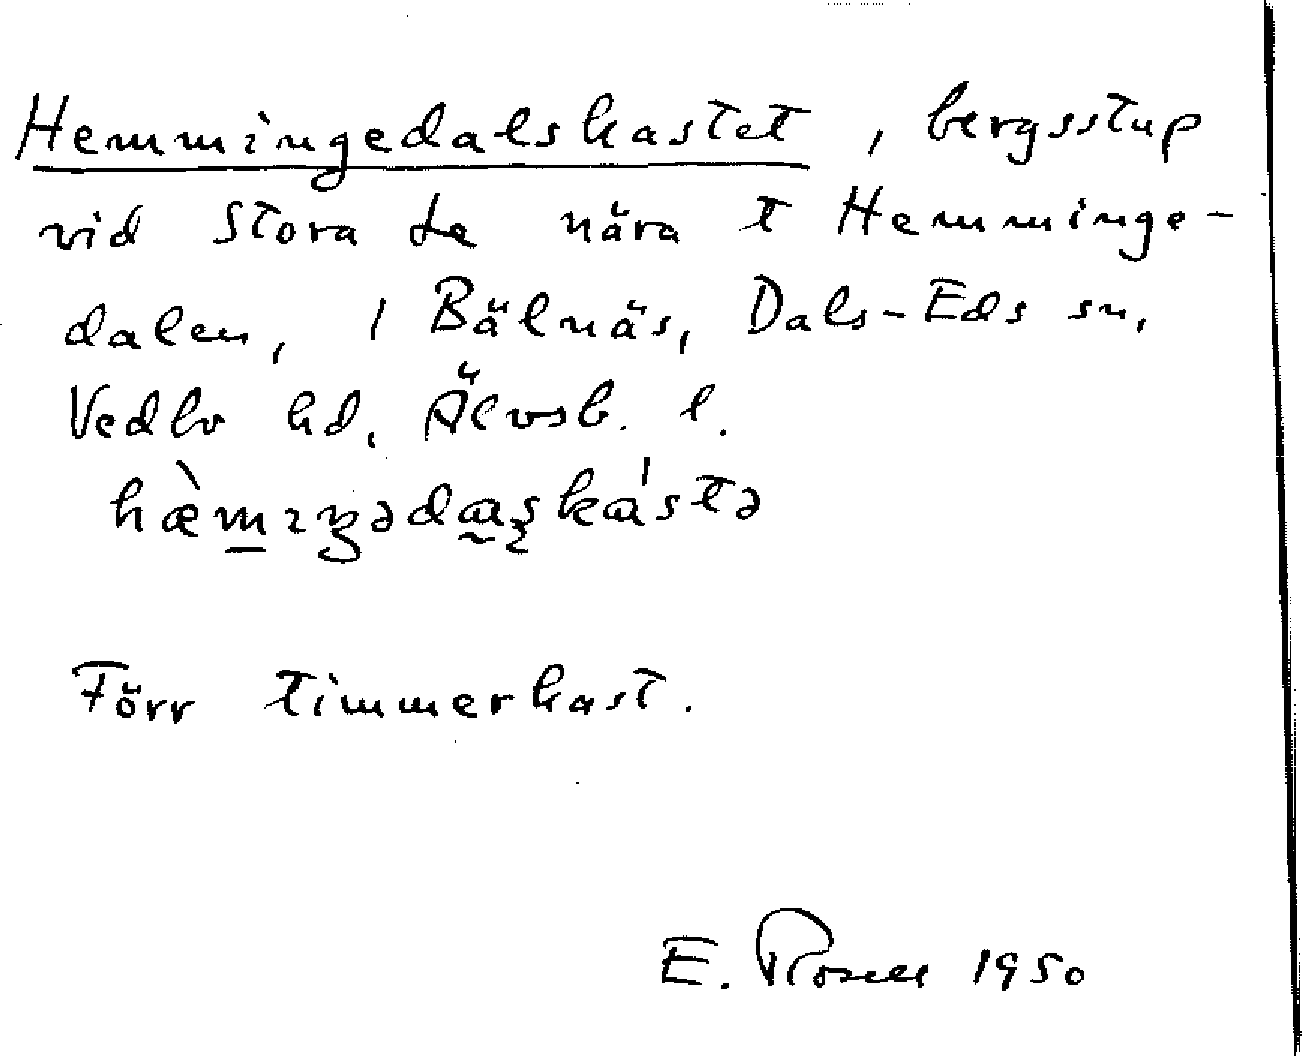 Hemmingedalskastet, bergsstup
vid Stora Le nära t Hemminge-
dalen, i Bälnäs, Dals-Eds sn,
Vedbo hd, Älvsb. l.
hæ̀m̱ıꞑədaʂkástə
Förr timmerkast.
E. Rosell 1950